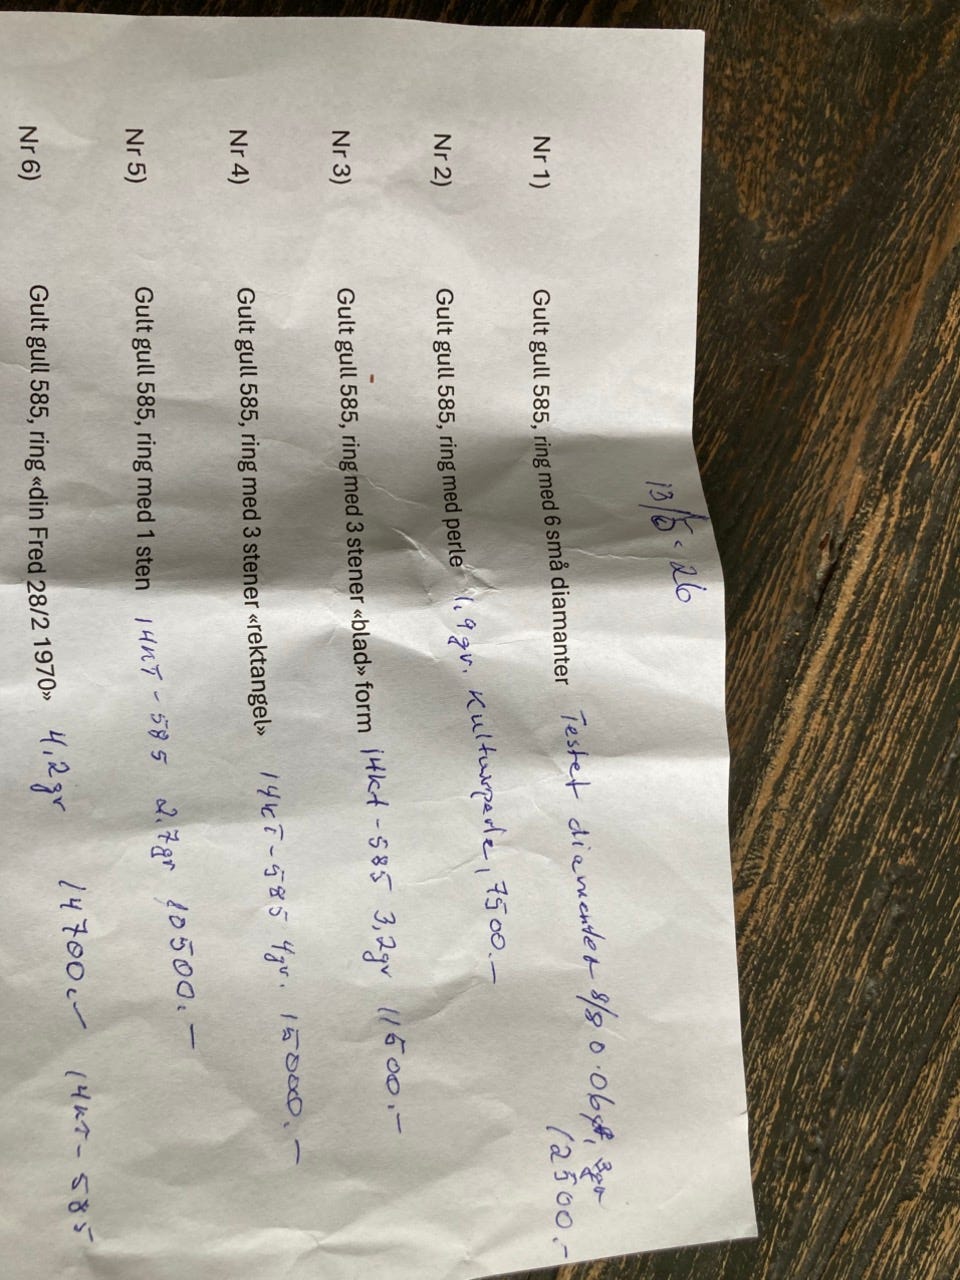 13/5-26
Nr 1) Gult gull 585, ring med 6 små diamanter Testet diamanter 8/8 0.06 3gr
12500.-
Nr 2) Gult gull 585, ring med perle 1.9gr. Kulturperle, 7500.-
Nr 3) Gult gull 585, ring med 3 stener «blad» form 14kt-585 3,2gr 11500.-
Nr 4) Gult gull 585, ring med 3 stener «rektangel» 14KT-585 4gr. 15000.-
Nr 5) Gult gull 585, ring med 1 sten 14KT-585 2.7gr 10500.-
Nr 6) Gult gull 585, ring «din Fred 28/2 1970» 4,2gr 14700.- 14KT-585